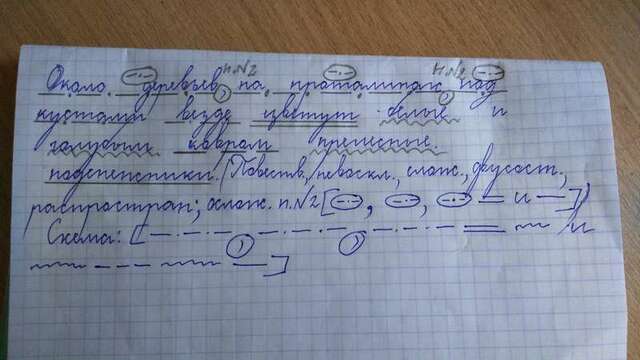 н.2 н.2
Около деревьев, по проталинам, под
кустами везде цветут белые и
голубым ковром прелестные
подснежники. (Повеств., невоскл., слож., двусост.,
распростран; ослож. п.№2 [ , , и ])
Схема: [ , , и
]